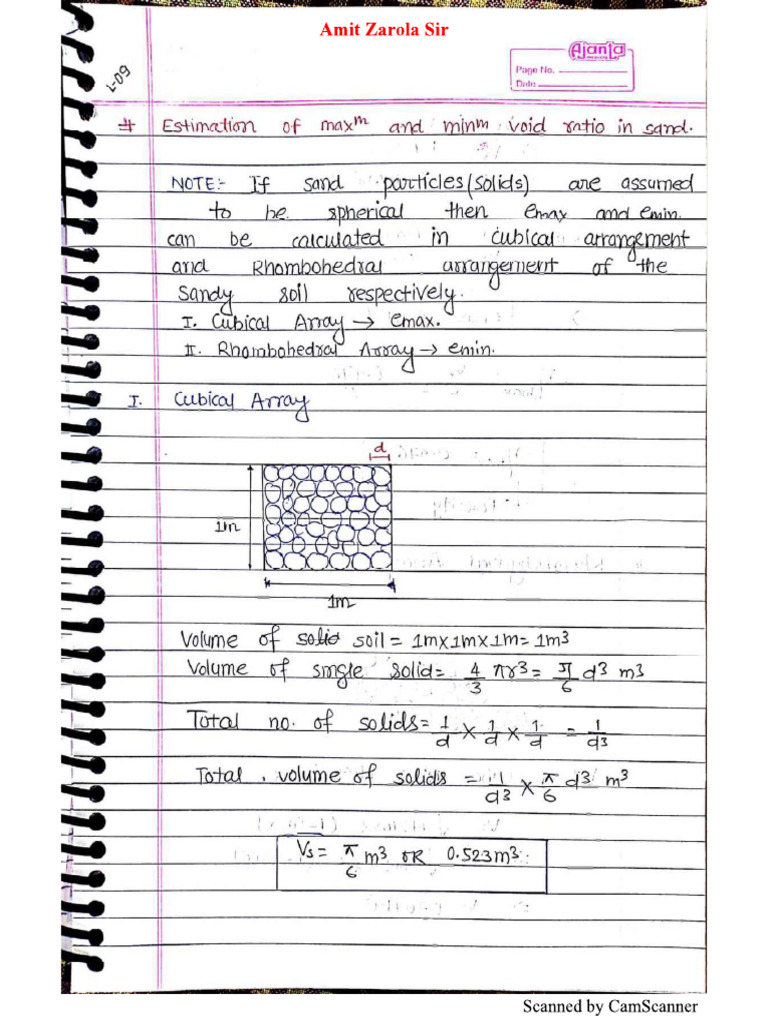 Amit Zarola Sir
Ajanta
Page No.
Date
L-09
# Estimation of maxᵐ and minᵐ void ratio in sand.
NOTE:- If sand particles (solids) are assumed
to be spherical then emax and emin.
can be calculated in cubical arrangement
and Rhombohedral arrangement of the
Sandy soil respectively.
I. Cubical Array → emax.
II. Rhombohedral Array → emin.
I. Cubical Array
d
1m
1m
Volume of soil = 1m×1m×1m= 1m³
Volume of single solid= 4/3 πr³ = π/6 d³ m³
Total no. of solids= 1/d × 1/d × 1/d = 1/d³
Total volume of solids = 1/d³ × π/6 d³ m³
Vs = π/6 m³ OR 0.523m³
Scanned by CamScanner